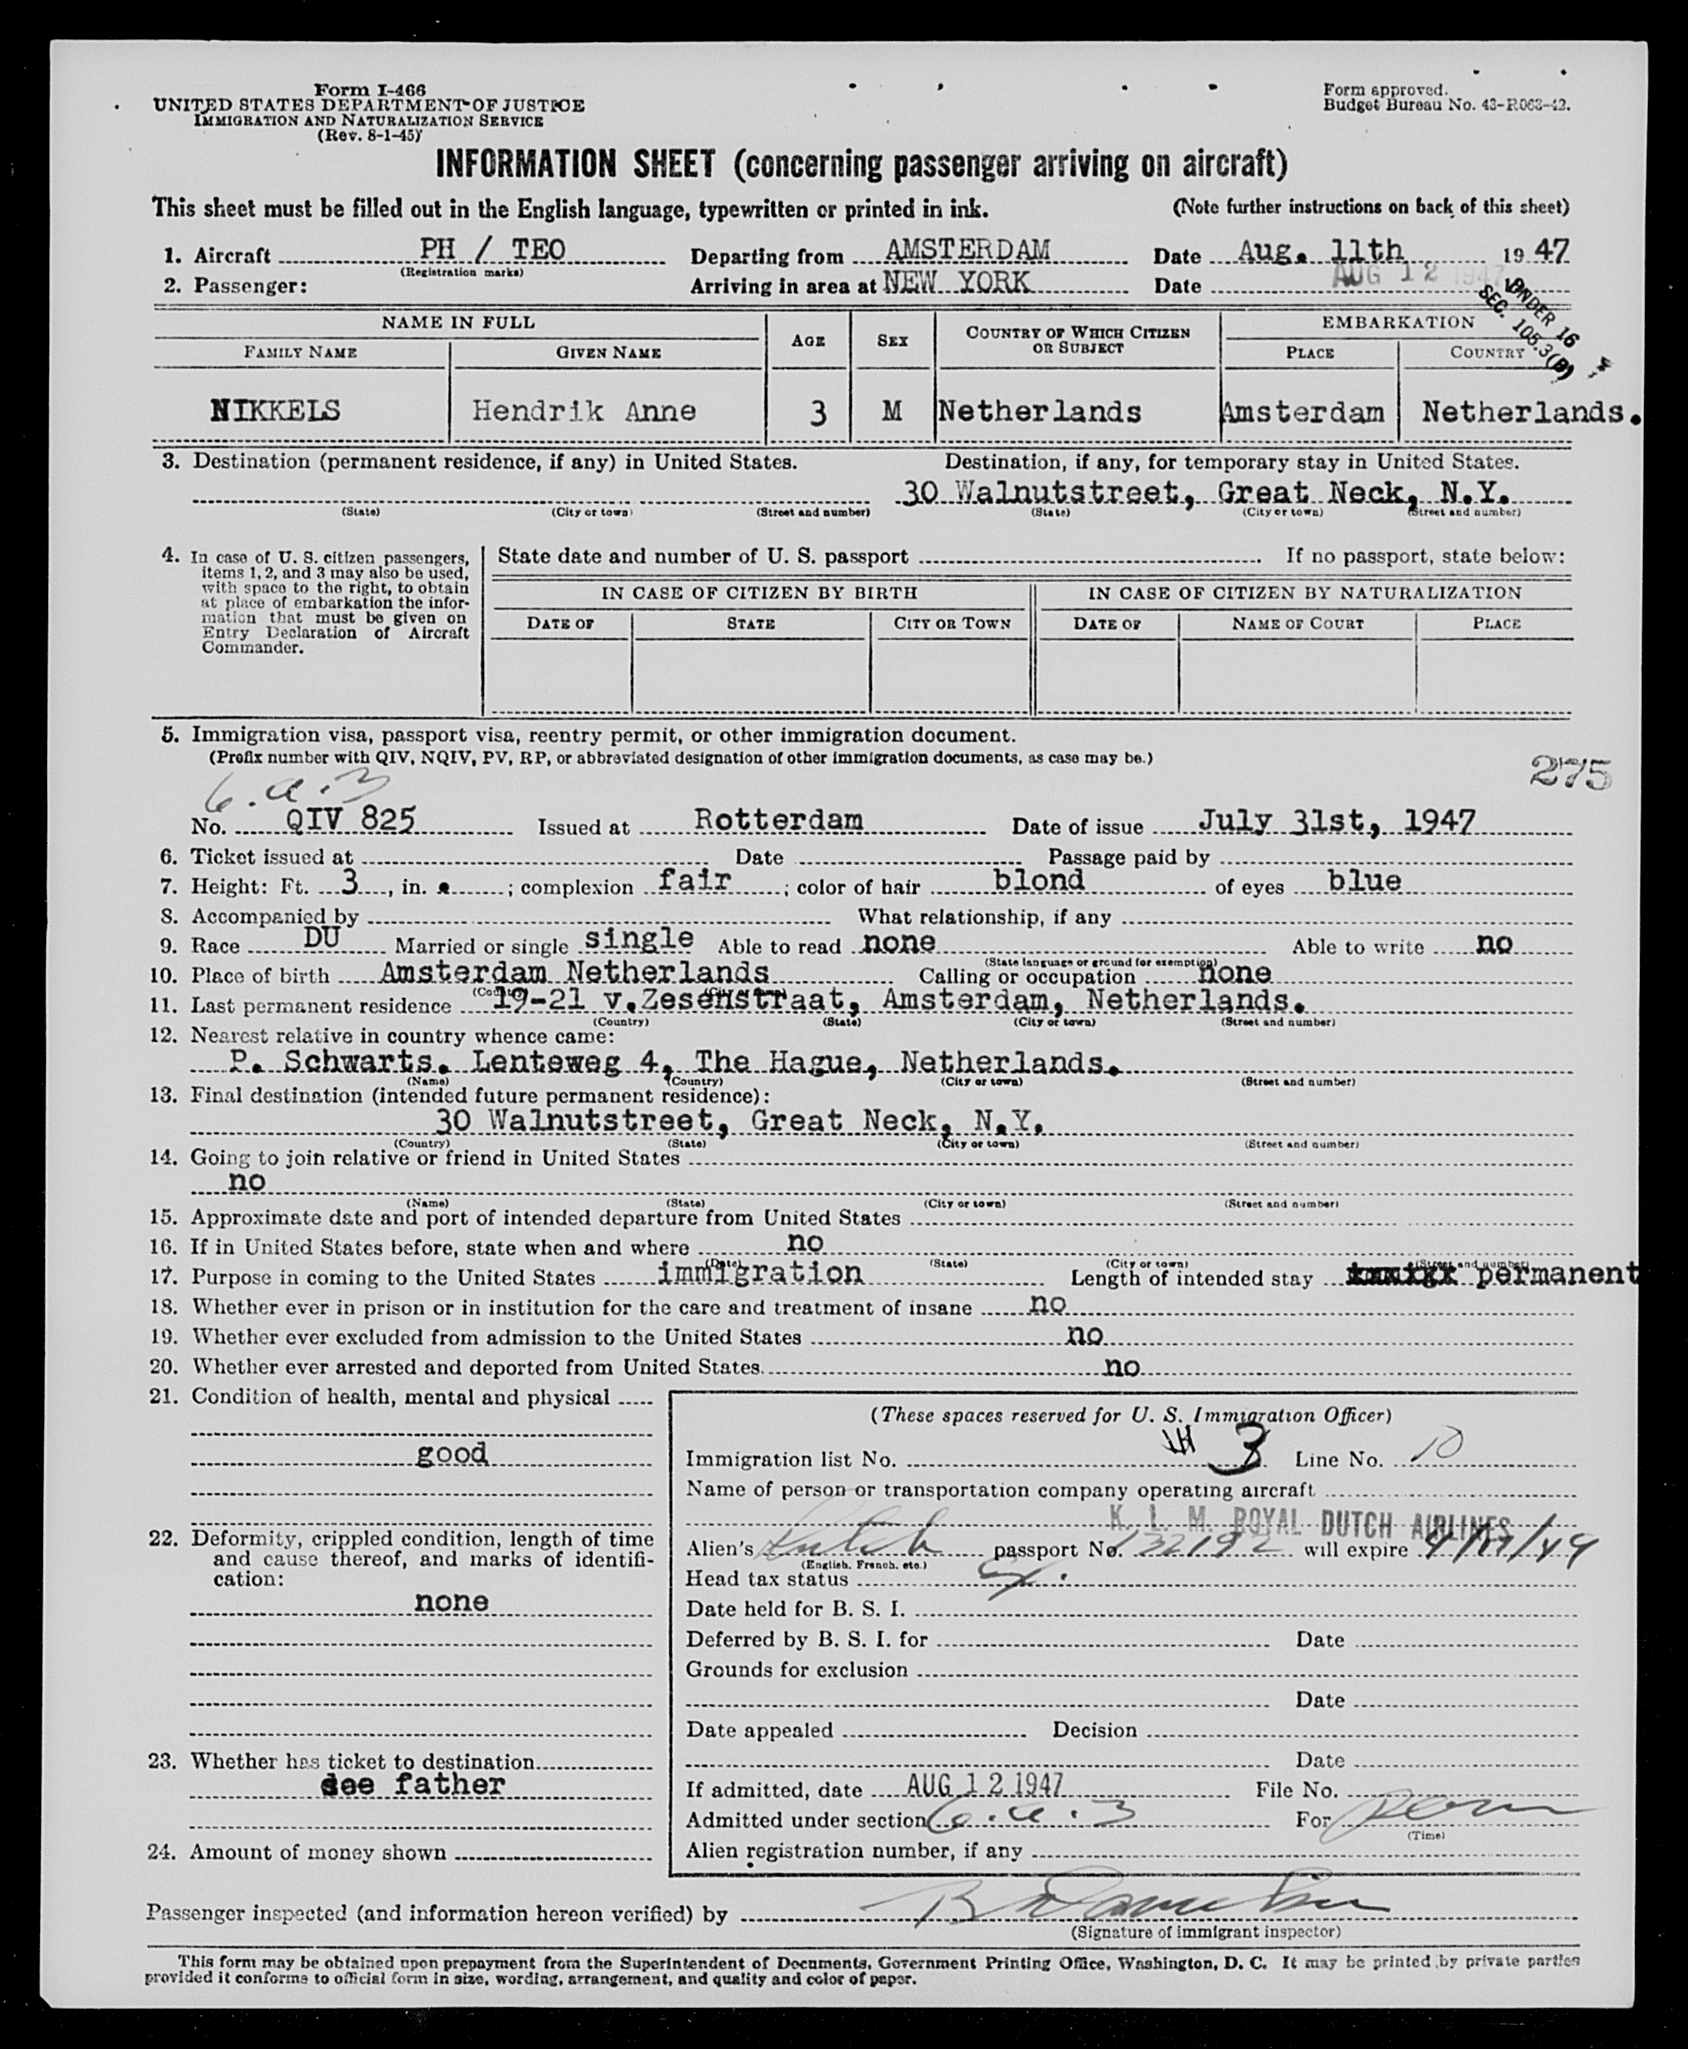 Form I-466
UNITED STATES DEPARTMENT OF JUSTICE
IMMIGRATION AND NATURALIZATION SERVICE
(Rev. 8-1-45)
Form approved.
Budget Bureau No. 43-R063-42.
INFORMATION SHEET (concerning passenger arriving on aircraft)
This sheet must be filled out in the English language, typewritten or printed in ink. (Note further instructions on back of this sheet)
1. Aircraft PH / TEO Departing from AMSTERDAM Date Aug. 11th 1947
(Registration marks)
2. Passenger: Arriving in area at NEW YORK Date AUG 12 1947
UNDER 16
SEC. 105.3(B)
NAME IN FULL AGE SEX COUNTRY OF WHICH CITIZEN OR SUBJECT EMBARKATION
FAMILY NAME GIVEN NAME PLACE COUNTRY
NIKKELS Hendrik Anne 3 M Netherlands Amsterdam Netherlands.
3. Destination (permanent residence, if any) in United States. Destination, if any, for temporary stay in United States.
30 Walnutstreet, Great Neck, N.Y.
(State) (City or town) (Street and number) (State) (City or town) (Street and number)
4. In case of U. S. citizen passengers, items 1, 2, and 3 may also be used, with space to the right, to obtain at place of embarkation the information that must be given on Entry Declaration of Aircraft Commander.
State date and number of U. S. passport If no passport, state below:
IN CASE OF CITIZEN BY BIRTH IN CASE OF CITIZEN BY NATURALIZATION
DATE OF STATE CITY OR TOWN DATE OF NAME OF COURT PLACE
5. Immigration visa, passport visa, reentry permit, or other immigration document.
(Prefix number with QIV, NQIV, PV, RP, or abbreviated designation of other immigration documents, as case may be.)
275
6.a.3
No. QIV 825 Issued at Rotterdam Date of issue July 31st, 1947
6. Ticket issued at Date Passage paid by
7. Height: Ft. 3, in. ; complexion fair ; color of hair blond of eyes blue
8. Accompanied by What relationship, if any
9. Race DU Married or single single Able to read none Able to write no
(State language or ground for exemption)
10. Place of birth Amsterdam Netherlands Calling or occupation none
(Country) (City or town)
11. Last permanent residence 19-21 v.Zesenstraat, Amsterdam, Netherlands.
(Country) (State) (City or town) (Street and number)
12. Nearest relative in country whence came:
P. Schwarts. Lenteweg 4, The Hague, Netherlands.
(Name) (Country) (City or town) (Street and number)
13. Final destination (intended future permanent residence):
30 Walnutstreet, Great Neck, N.Y.
(Country) (State) (City or town) (Street and number)
14. Going to join relative or friend in United States
no
(Name) (State) (City or town) (Street and number)
15. Approximate date and port of intended departure from United States
16. If in United States before, state when and where no
(Date) (State) (City or town) (Street and number)
17. Purpose in coming to the United States immigration Length of intended stay permanent
18. Whether ever in prison or in institution for the care and treatment of insane no
19. Whether ever excluded from admission to the United States no
20. Whether ever arrested and deported from United States. no
21. Condition of health, mental and physical
good
22. Deformity, crippled condition, length of time and cause thereof, and marks of identification:
none
23. Whether has ticket to destination
see father
24. Amount of money shown
(These spaces reserved for U. S. Immigration Officer)
Immigration list No. 3 Line No. 10
Name of person or transportation company operating aircraft
K. L. M. ROYAL DUTCH AIRLINES
Alien's Dutch passport No. 132192 will expire
(English, French, etc.)
Head tax status
Date held for B. S. I.
Deferred by B. S. I. for Date
Grounds for exclusion
Date
Date appealed Decision
Date
If admitted, date AUG 12 1947 File No.
Admitted under section 6.a.3 For perm
(Time)
Alien registration number, if any
Passenger inspected (and information hereon verified) by
(Signature of immigrant inspector)
This form may be obtained upon prepayment from the Superintendent of Documents, Government Printing Office, Washington, D. C. It may be printed by private parties
provided it conforms to official form in size, wording, arrangement, and quality and color of paper.